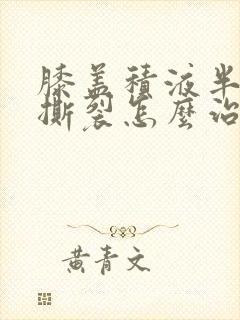 膝盖積液半
撕裂怎麼治
黄青文